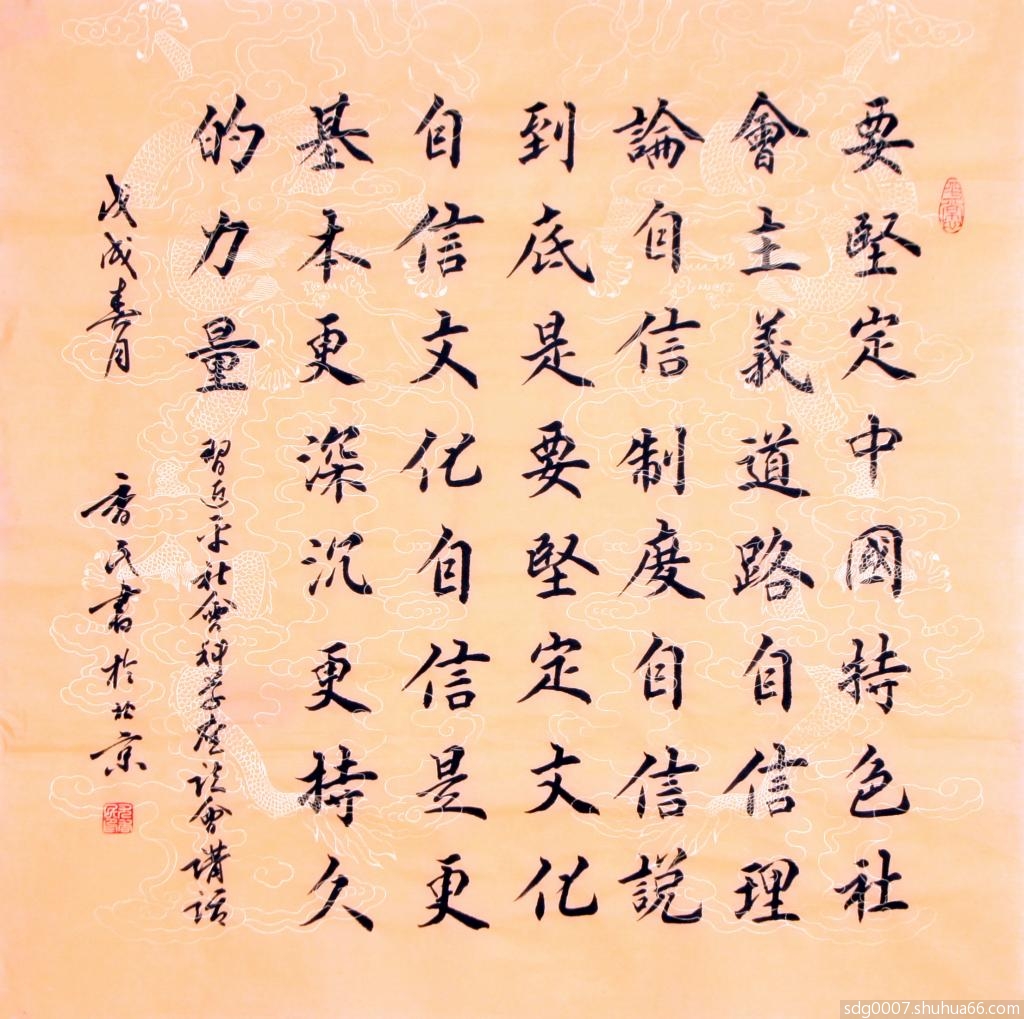 要堅定中國特色社
會主義道路自信理
論自信制度自信説
到底是要堅定文化
自信文化自信是更
基本更深沉更持久
的力量
習近平社會科學座談會講話
戊戌春月
書於北京
sdg0007.shuhua66.com